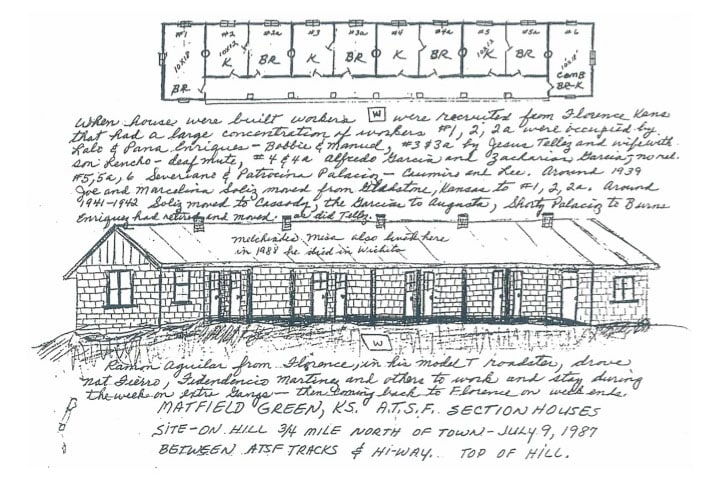 #1 #2 #2a #3 #3a #4 #4a #5 #5a #6
10X18 10X12 K BR K BR K BR 10X12 K BR 10X18
BR COMB
BR-K
When houses were built workers W were recruited from Florence Kans
that had a large concentration of workers #1, 2, 2a were occupied by
Lalo & Pana Enriques - Bobbie & Manuel, #3 & 3a by Jesus Tellez and wife with
son Lencho - deaf mute, #4 & 4a Alfredo Garcia and Zacharias Garcia, no rel.
#5, 5a, 6 Severiano & Patrocina Palacio - Casimiro and Lee. Around 1939
Joe and Marcelina Soliz moved from Gladstone, Kansas to #1, 2, 2a. Around
1941-1942 Soliz moved to Cassody, the Garcias to Augusta, Shorty Palacio to Burns
Enriques had retired and moved as did Tellez.
Melchiades Misa also lived here
in 1988 he died in Wichita
W
Ramon Aguilar from Florence, in his model T roadster, drove
Nat Fierro, Fidendencio Martinez and others to work and stay during
the week on Extra Gangs - then coming back to Florence on weekends.
MATFIELD GREEN, KS. A.T.S.F. SECTION HOUSES
SITE-ON HILL 3/4 MILE NORTH OF TOWN - JULY 9, 1987
BETWEEN ATSF TRACKS & HI-WAY... TOP OF HILL.